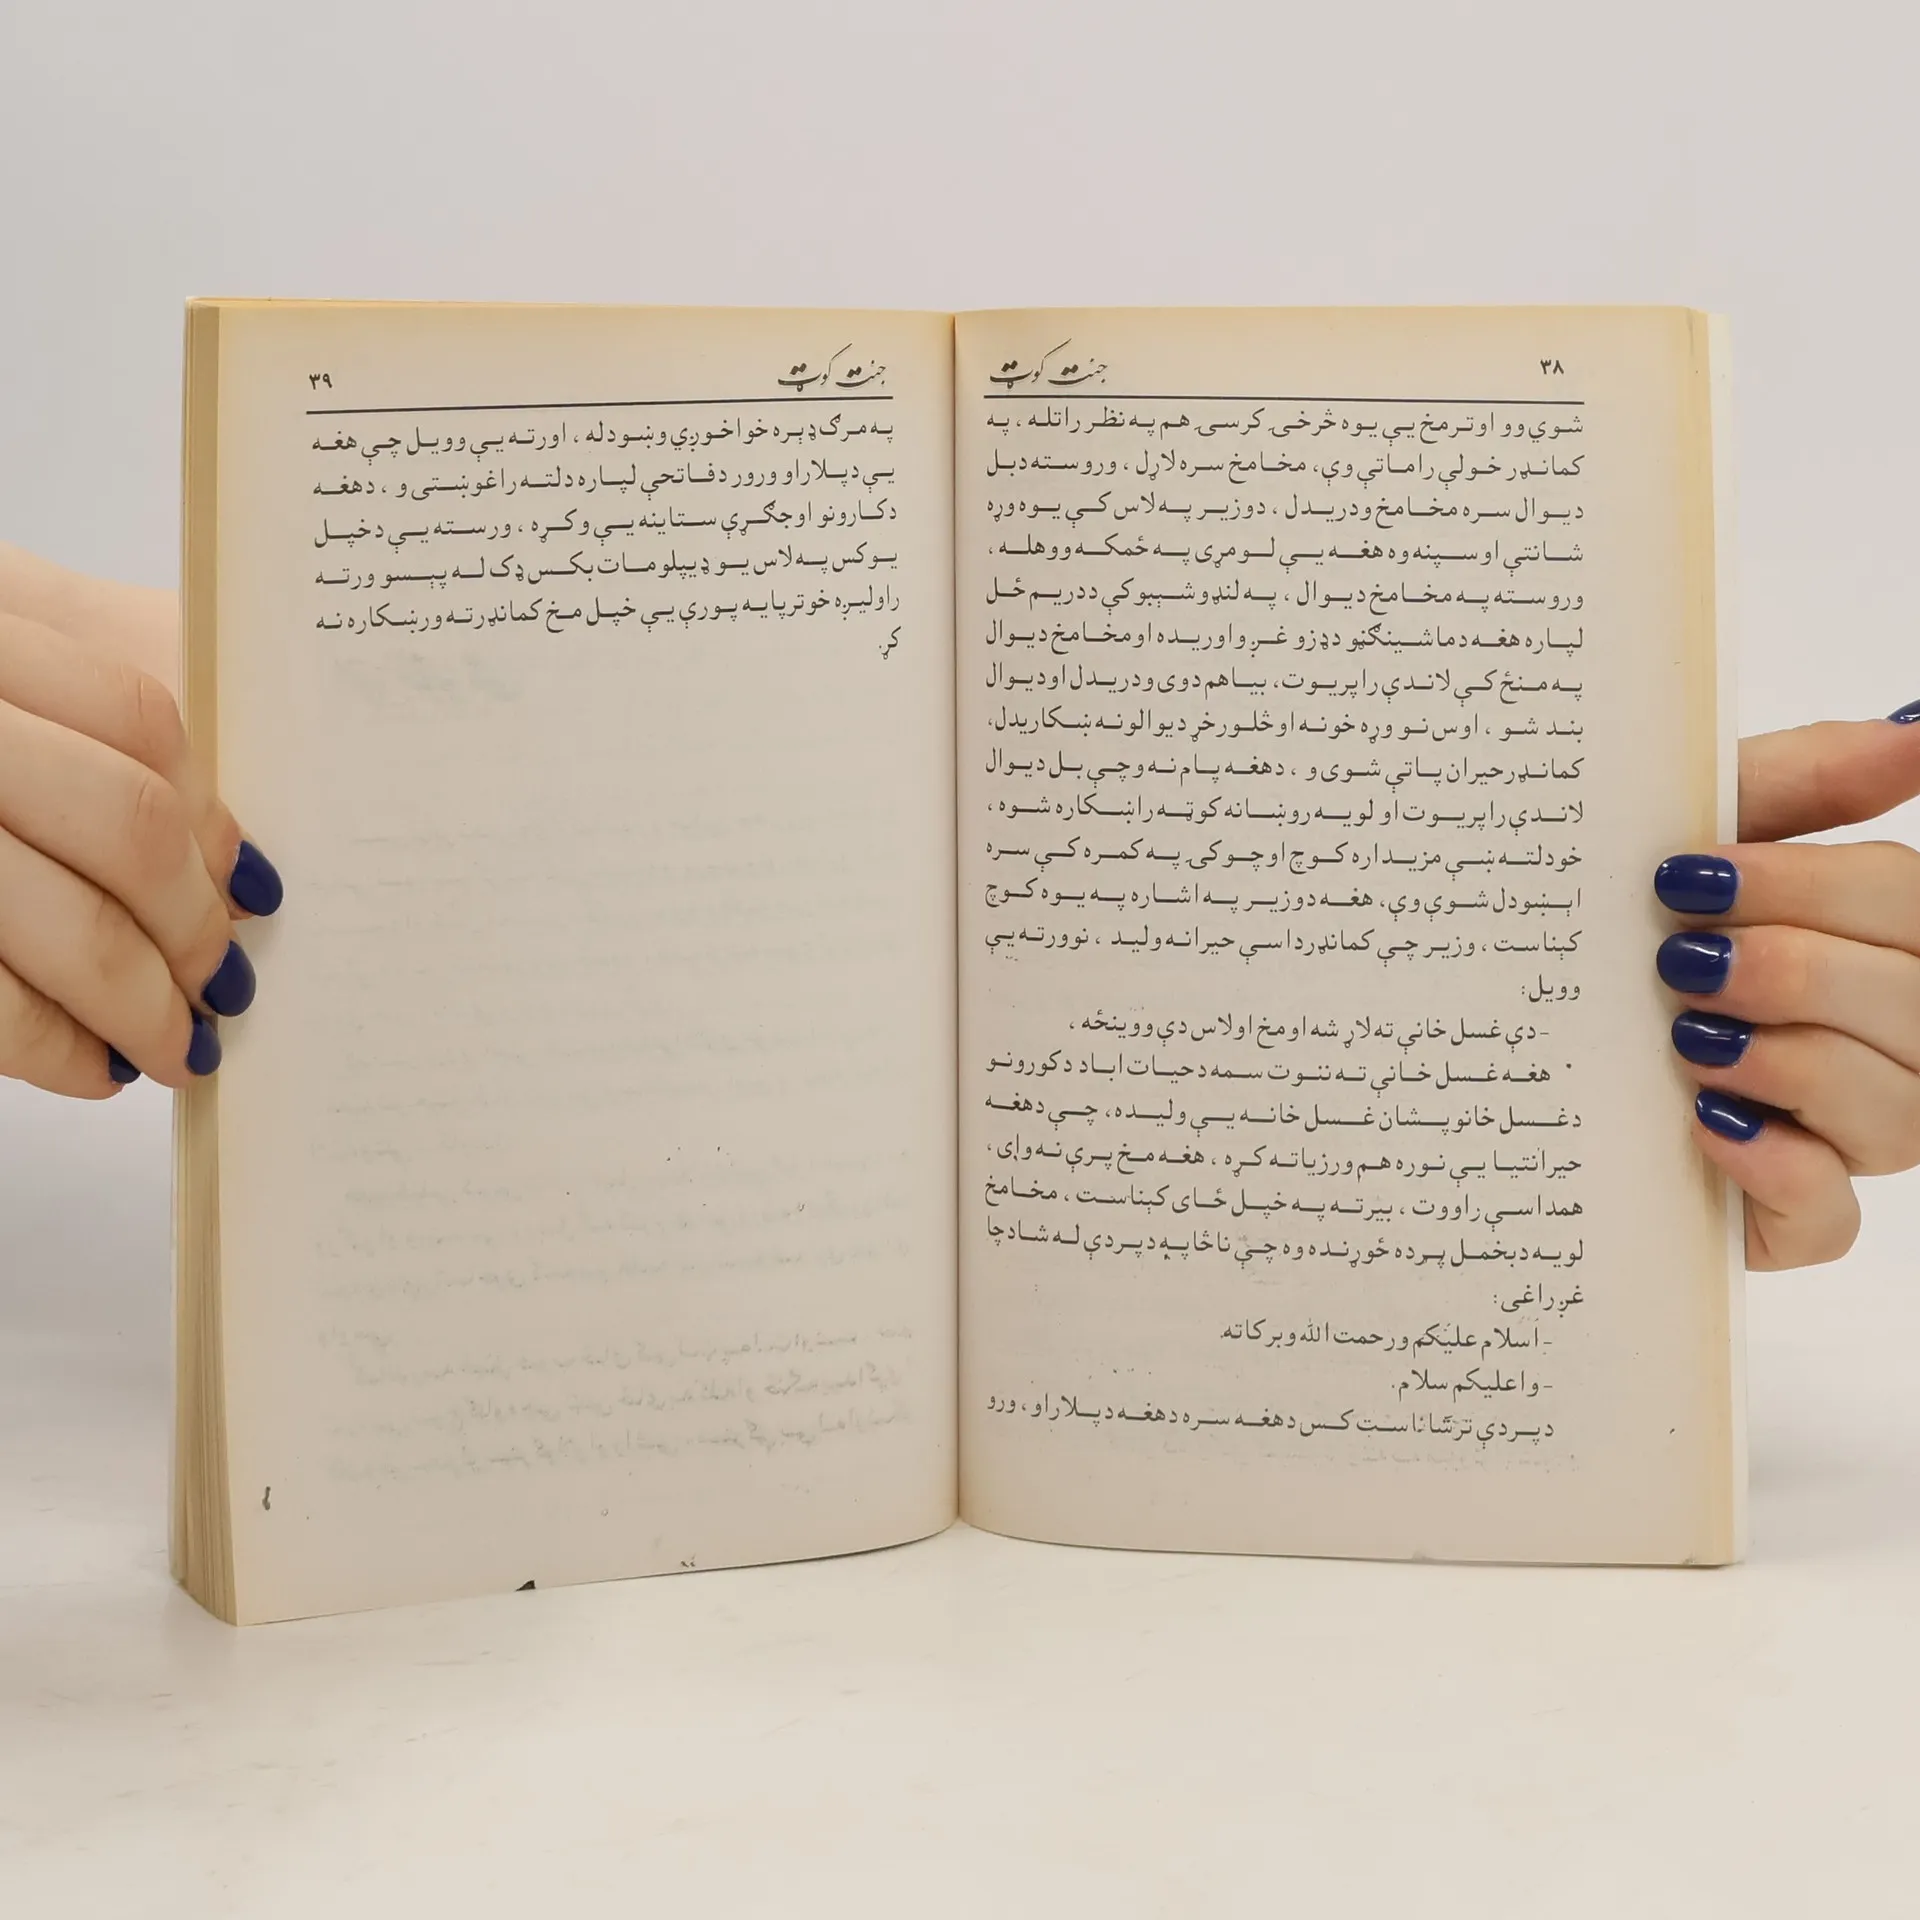 ۳۸
جنت کوټ
شوي وو او تر مخ يې يوه څرخی کرسی هم په نظر راتله ، په
کمانډر خولې راماتې وې، مخامخ سره لاړل ، وروسته د بل
ديوال سره مخامخ ودريدل ، د وزير په لاس کې يوه وړه
شانتې اوسپنه وه هغه يې لومړی په ځمکه ووهله ،
وروسته په مخامخ ديوال ، په لنډو شېبو کې د دريم ځل
لپاره هغه د ماشينګڼو د ډزو غږ واوريده او مخامخ ديوال
په منځ کې لاندې راپريوت، بيا هم دوی ودريدل او ديوال
بند شو ، اوس نو وړه خونه او څلور خړ ديوالونه ښکاريدل،
کمانډر حيران پاتې شوی و ، د هغه پام نه و چې بل ديوال
لاندې راپريوت او لويه روښانه کوټه راښکاره شوه ،
خو دلته ښې مزيداره کوچ او چوکۍ په کمره کې سره
اېښودل شوې وې، هغه د وزير په اشاره په يوه کوچ
کېناست ، وزير چې کمانډر داسې حيرانه وليد ، نو ورته يې
وويل:
-دې غسل خانې ته لاړ شه او مخ او لاس دې ووينځه ،
هغه غسل خانې ته ننوت سمه د حيات اباد د کورونو
د غسل خانو پشان غسل خانه يې وليده، چې د هغه
حيرانتيا يې نوره هم ورزياته کړه ، هغه مخ پرې نه واې ،
همداسې راووت ، بيرته په خپل ځای کېناست ، مخامخ
لويه د بخمل پرده ځوړنده وه چې ناڅاپه د پردې له شا د چا
غږ راغی:
- اسلام عليکم ورحمت الله وبرکاته
- واعليکم سلام.
د پردې تر شا ناست کس د هغه سره د هغه د پلار او ، ورو
۳۹
جنت کوټ
په مرګ ډېره خواخوږي وښودله ، او رته يې وويل چې هغه
يې د پلار او ورور د فاتحې لپاره دلته راغوښتی و ، د هغه
د کارونو او جګړې ستاينه يې وکړه ، ورسته يې د خپل
يو کس په لاس يو ډيپلومات بکس ډک له پېسو ورته
راوليږه خو تر پايه پورې يې خپل مخ کمانډر ته ورښکاره نه
کړ.